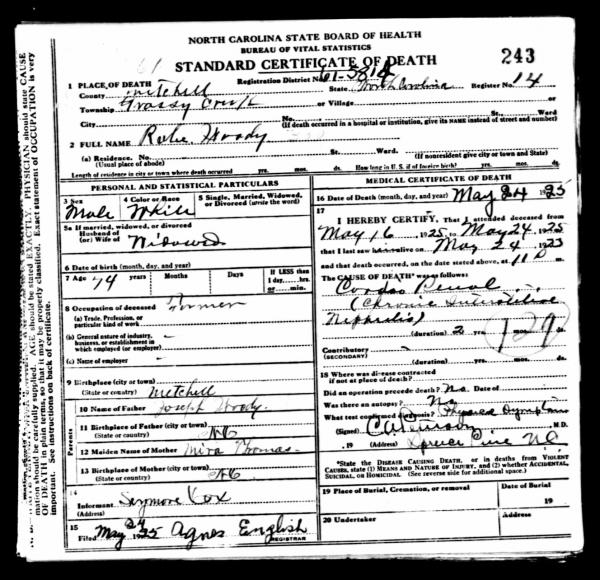 NORTH CAROLINA STATE BOARD OF HEALTH
BUREAU OF VITAL STATISTICS
STANDARD CERTIFICATE OF DEATH
243
61
1 PLACE OF DEATH
Registration District No. 61-5814
County Mitchell State North Carolina Register No. 14
Township Grassy Creek or Village
City No. St., Ward
(If death occurred in a hospital or institution, give its NAME instead of street and number)
2 FULL NAME Woody
(a) Residence. No. St., Ward.
(Usual place of abode) (If nonresident give city or town and State)
Length of residence in city or town where death occurred yrs. mos. ds. How long in U. S. if of foreign birth? yrs. mos. ds.
PERSONAL AND STATISTICAL PARTICULARS
3 Sex Male
4 Color or Race White
5 Single, Married, Widowed, or Divorced (write the word)
5a If married, widowed, or divorced
Husband of
(or) Wife of
Widowed
6 Date of birth (month, day, and year)
7 Age 74 years Months Days If LESS than 1 day, hrs. or min.
8 Occupation of deceased Farmer
(a) Trade, Profession, or particular kind of work
(b) General nature of industry, business, or establishment in which employed (or employer)
(c) Name of employer
9 Birthplace (city or town)
(State or country) Mitchell
Parents
10 Name of Father Joseph Woody
11 Birthplace of Father (city or town)
(State or country) N C
12 Maiden Name of Mother Mira Thomas
13 Birthplace of Mother (city or town)
(State or country) N C
14
Informant Seymore Cox
(Address)
15
Filed May 24 1925 Agnes English
REGISTRAR
MEDICAL CERTIFICATE OF DEATH
16 Date of Death (month, day, and year) May 24 1925
17
I HEREBY CERTIFY, That I attended deceased from
May 16 1925 to May 24, 1925
that I last saw him alive on May 24 1925
and that death occurred, on the date stated above, at 11 P m.
The CAUSE OF DEATH* was as follows:
Cardio Renal
(Chronic Interstitial
Nephritis)
(duration) 2 yrs. mos. ds.
129
Contributory
(Secondary)
(duration) yrs. mos. ds.
18 Where was disease contracted
if not at place of death?
Did an operation precede death? No Date of
Was there an autopsy? No
What test confirmed diagnosis? Physical Symptoms
(Signed) M.D.
, 19 (Address) Spruce Pine N C
*State the DISEASE CAUSING DEATH, or in deaths from VIOLENT CAUSES, state (1) MEANS AND NATURE OF INJURY, and (2) whether ACCIDENTAL, SUICIDAL, OR HOMICIDAL. (See reverse side for additional space.)
19 Place of Burial, Cremation, or removal Date of Burial
19
20 Undertaker Address
mation should be carefully supplied. AGE should be stated EXACTLY. PHYSICIAN should state CAUSE
OF DEATH in plain terms, so that it may be properly classified. Exact statement of OCCUPATION is very
important. See instructions on back of certificate.